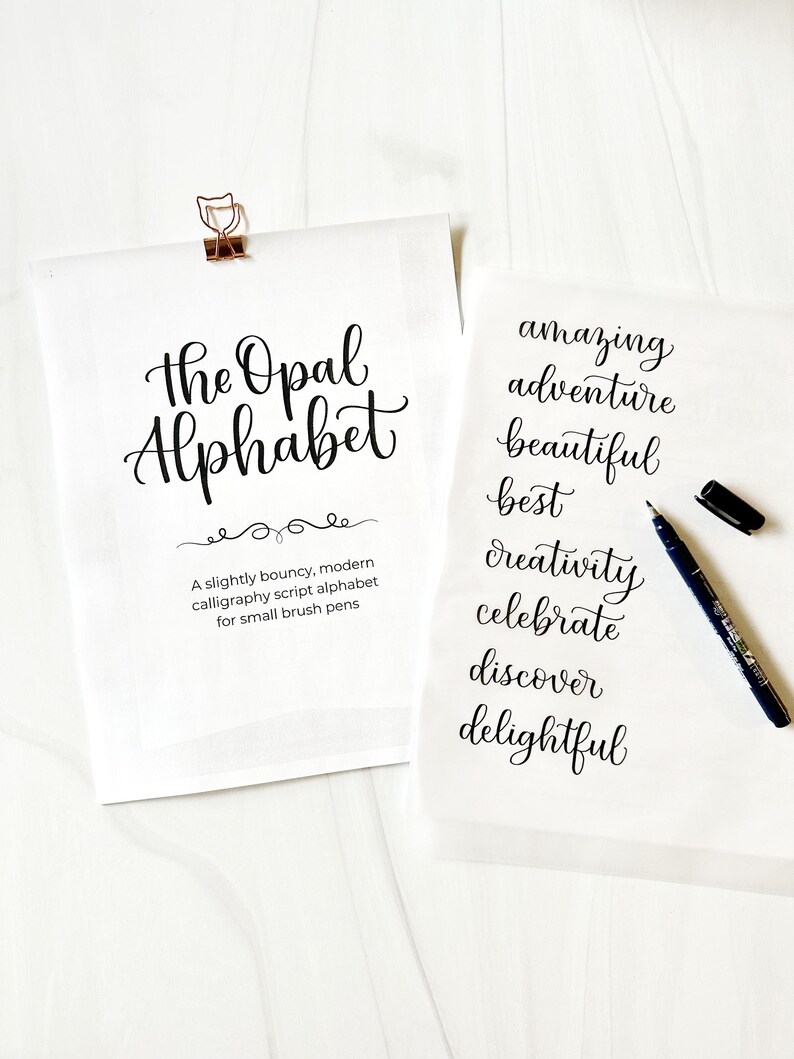 the Opal
Alphabet
A slightly bouncy, modern
calligraphy script alphabet
for small brush pens
amazing
adventure
beautiful
best
creativity
celebrate
discover
delightful